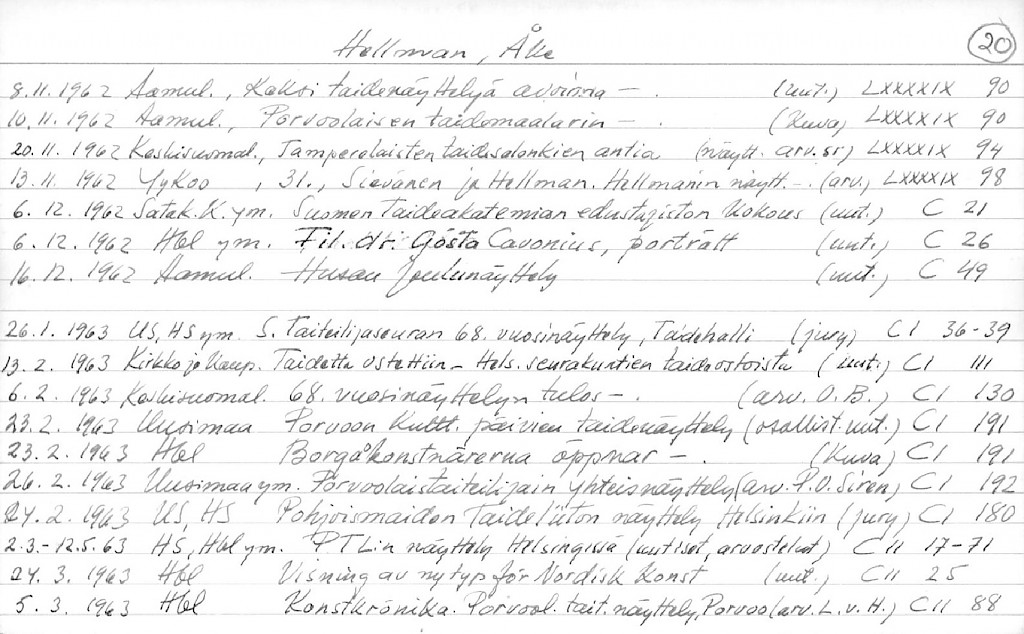 Hellman, Åke 20
8.11.1962 Aamul., Kaksi taidenäyttelyä avoinna – . (uut.) LXXXXIX 90
10.11.1962 Aamul., Porvoolaisen taidemaalarin – . (Kuva) LXXXXIX 90
20.11.1962 Keskisuomal., Tamperelaisten taidesalonkien antia (näytt. arv. sr) LXXXXIX 94
13.11.1962 Yykoo , 31., Sievänen ja Hellman. Hellmanin näytt. – . (arv.) LXXXXIX 98
6.12.1962 Satak.K. ym. Suomen Taideakatemian edustajiston kokous (uut.) C 21
6.12.1962 Hbl ym. Fil. dr. Gösta Cavonius, porträtt (uut.) C 26
16.12.1962 Aamul. Husan Joulunäyttely (uut.) C 49
26.1.1963 US, HS ym. S. Taiteilijaseuran 68. vuosinäyttely, Taidehalli (jury) CI 36-39
13.2.1963 Kirkko ja Kaup. Taidetta ostettiin – Hels. seurakuntien taideostoista (uut.) CI 111
6.2.1963 Keskisuomal. 68. vuosinäyttelyn tulos – . (arv. O.B.) CI 130
23.2.1963 Uusimaa Porvoon Kultt. päivien taidenäyttely (osallist. uut.) CI 191
23.2.1963 Hbl Borgåkonstnärerna öppnar – . (Kuva) CI 191
26.2.1963 Uusimaa ym. Porvoolaistaiteilijain yhteisnäyttely (arv. P.O. Siren) CI 192
24.2.1963 US, HS Pohjoismaiden Taideliiton näyttely Helsinkiin (jury) CI 180
2.3.-12.5.63 HS, Hbl ym. PTL:n näyttely Helsingissä (uutiset, arvostelut) CII 17-71
24.3.1963 Hbl Visning av ny typ för Nordisk Konst (uut.) CII 25
5.3.1963 Hbl Konstkrönika. Porvool. tait. näyttely, Porvoo (arv. L.v.H.) CII 88